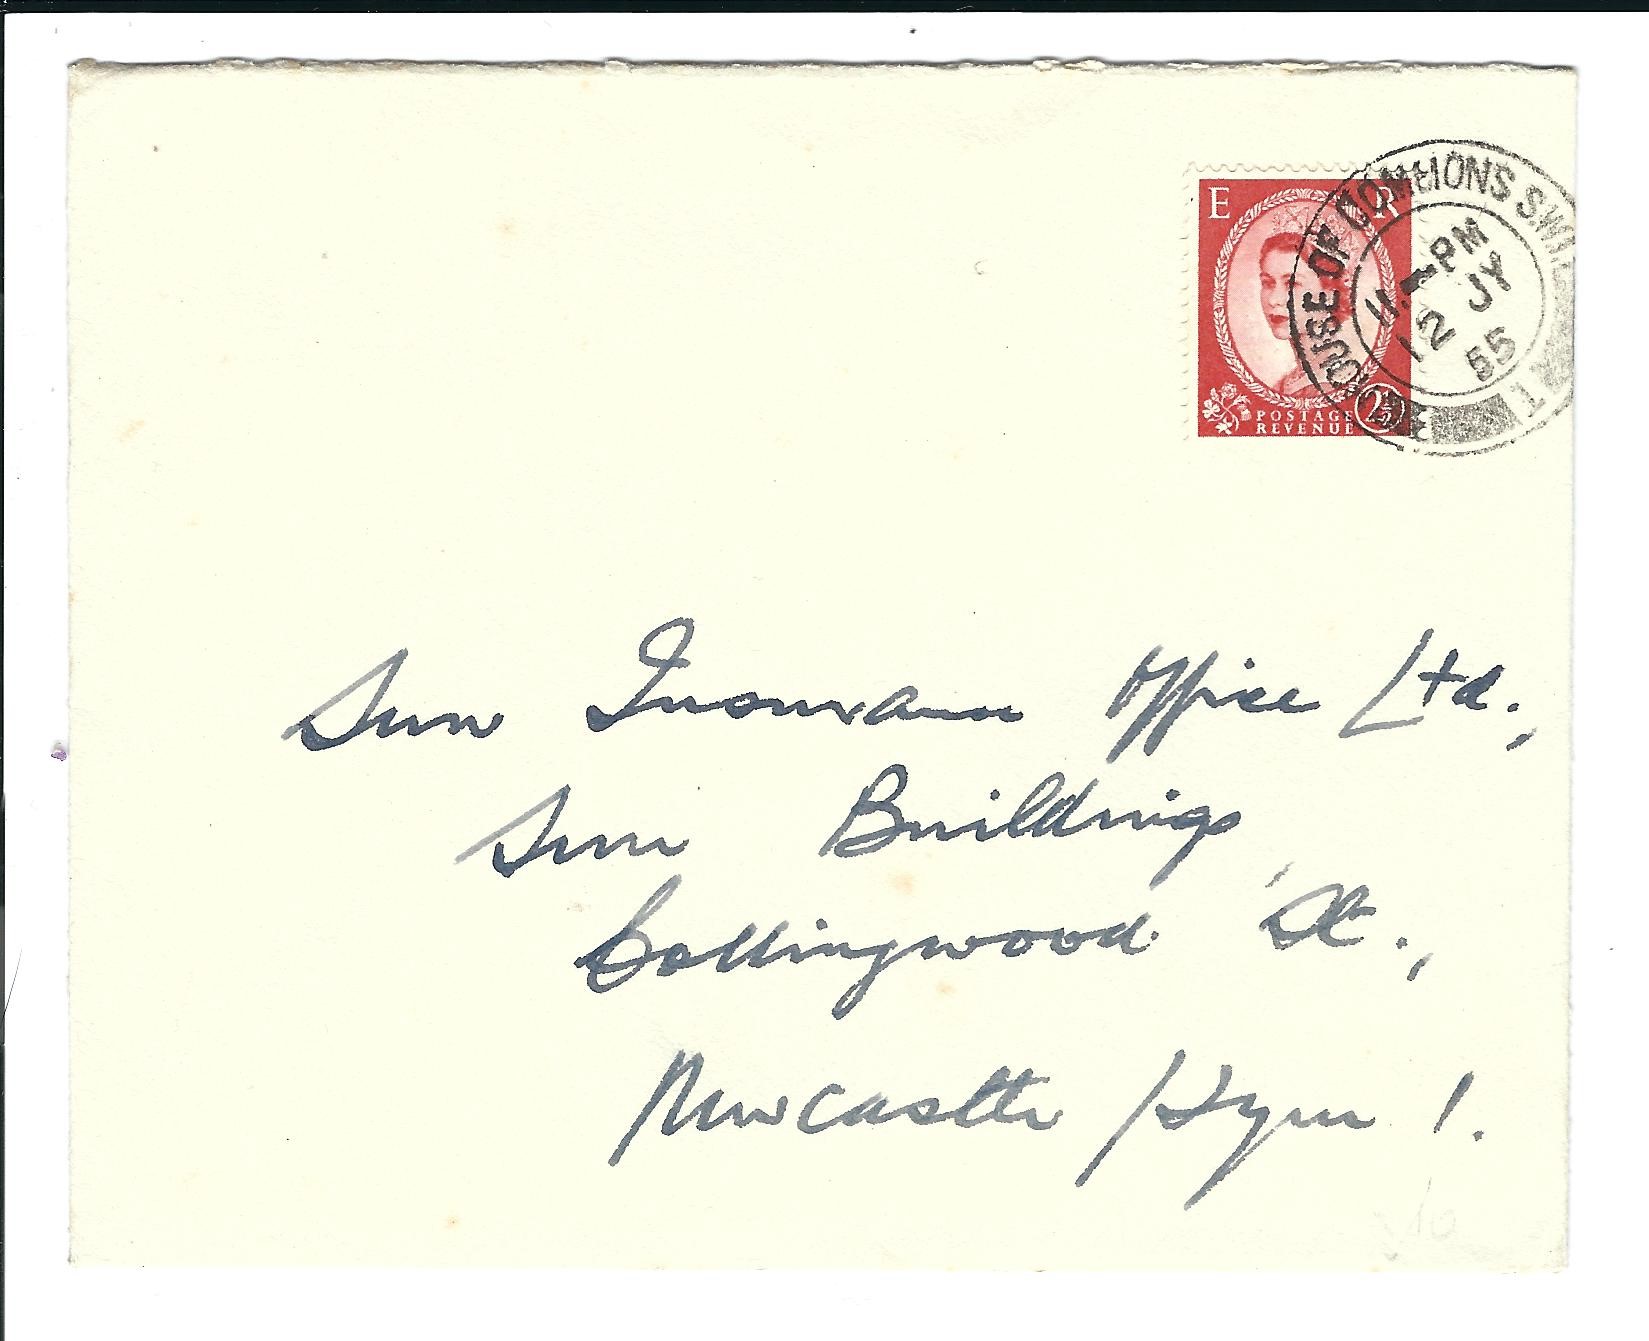 E R
POSTAGE 2½
REVENUE
HOUSE OF COMMONS S.W.1
PM
12 JY
55
Sun Insurance Office Ltd.,
Sun Buildings,
Collingwood St.,
Newcastle/Tyne 1.